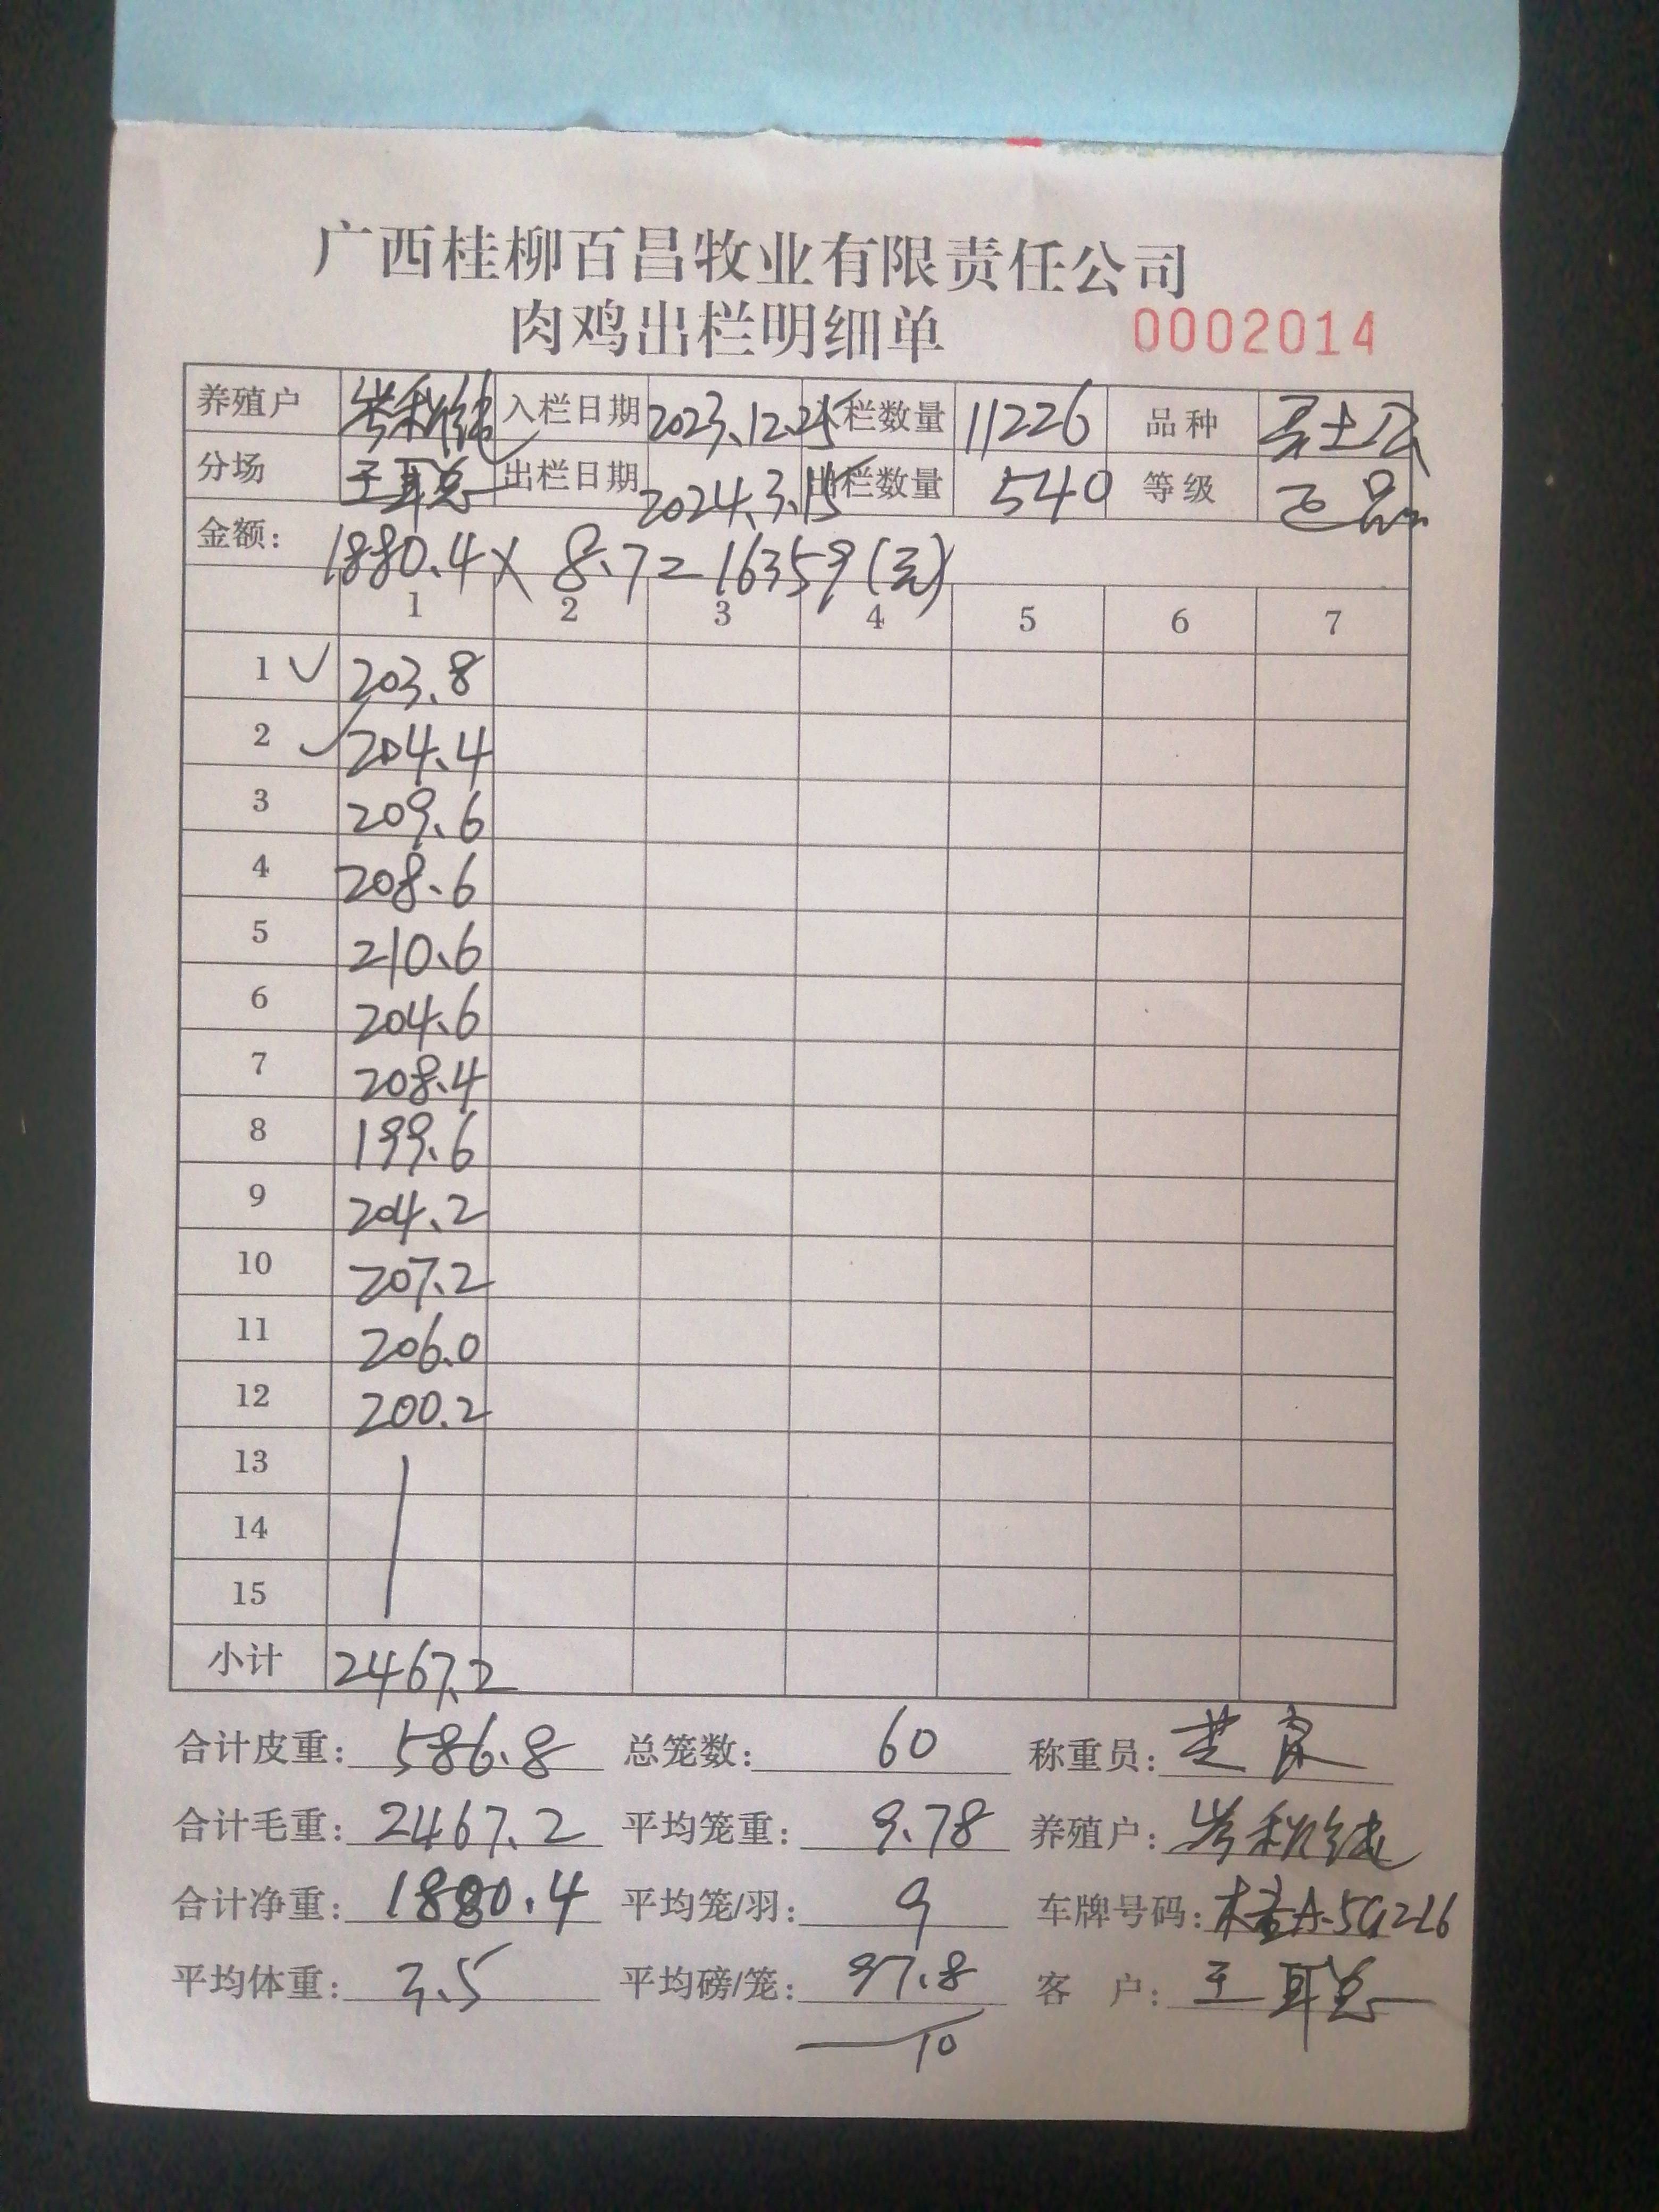 广西桂柳百昌牧业有限责任公司
肉鸡出栏明细单 0002014
养殖户 岑秋纯 入栏日期 2023.12.25 栏数量 11226 品种
分场 王耳总 出栏日期 2024.3.15 出栏数量 540 等级 正品
金额: 1880.4×8.7=16359(元)
1 2 3 4 5 6 7
1 203.8
2 204.4
3 209.6
4 208.6
5 210.6
6 204.6
7 208.4
8 199.6
9 204.2
10 207.2
11 206.0
12 200.2
13
14
15
小计 2467.2
合计皮重: 586.8 总笼数: 60 称重员:
合计毛重: 2467.2 平均笼重: 9.78 养殖户: 岑秋纯
合计净重: 1880.4 平均笼/羽: 9 车牌号码:
平均体重: 3.5 平均磅/笼: 97.8 客户: 王耳总
10